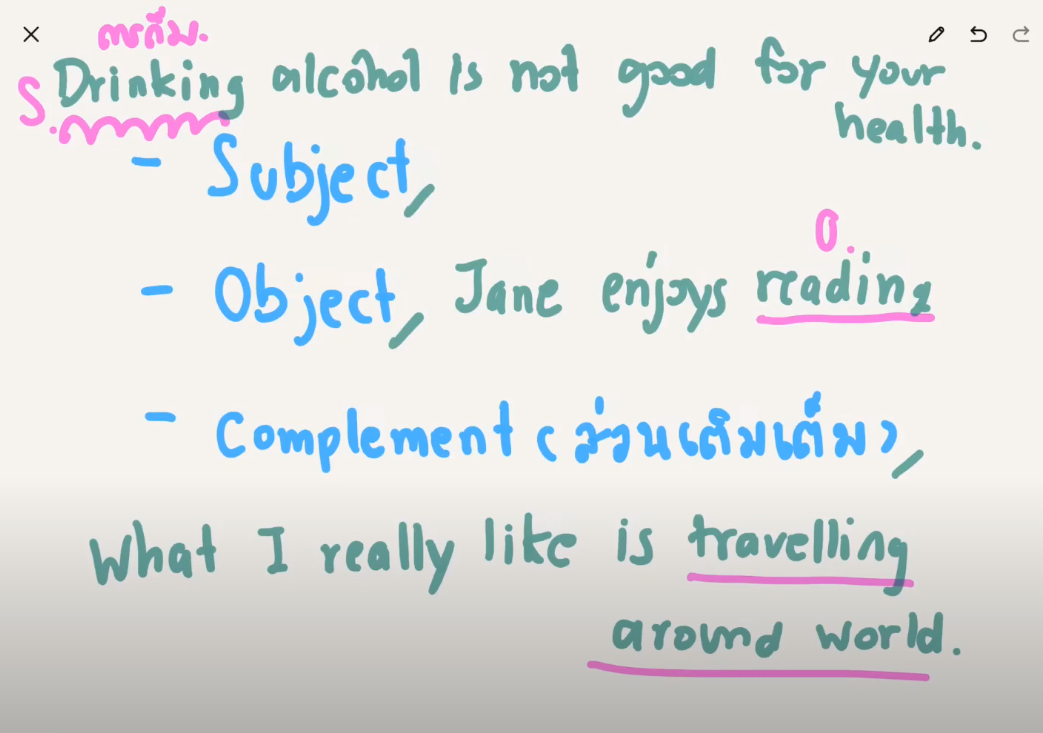 การดื่ม.
S. Drinking alcohol is not good for your
health.
- Subject
O.
- Object, Jane enjoys reading
- Complement (ส่วนเติมเต็ม)
What I really like is travelling
around world.